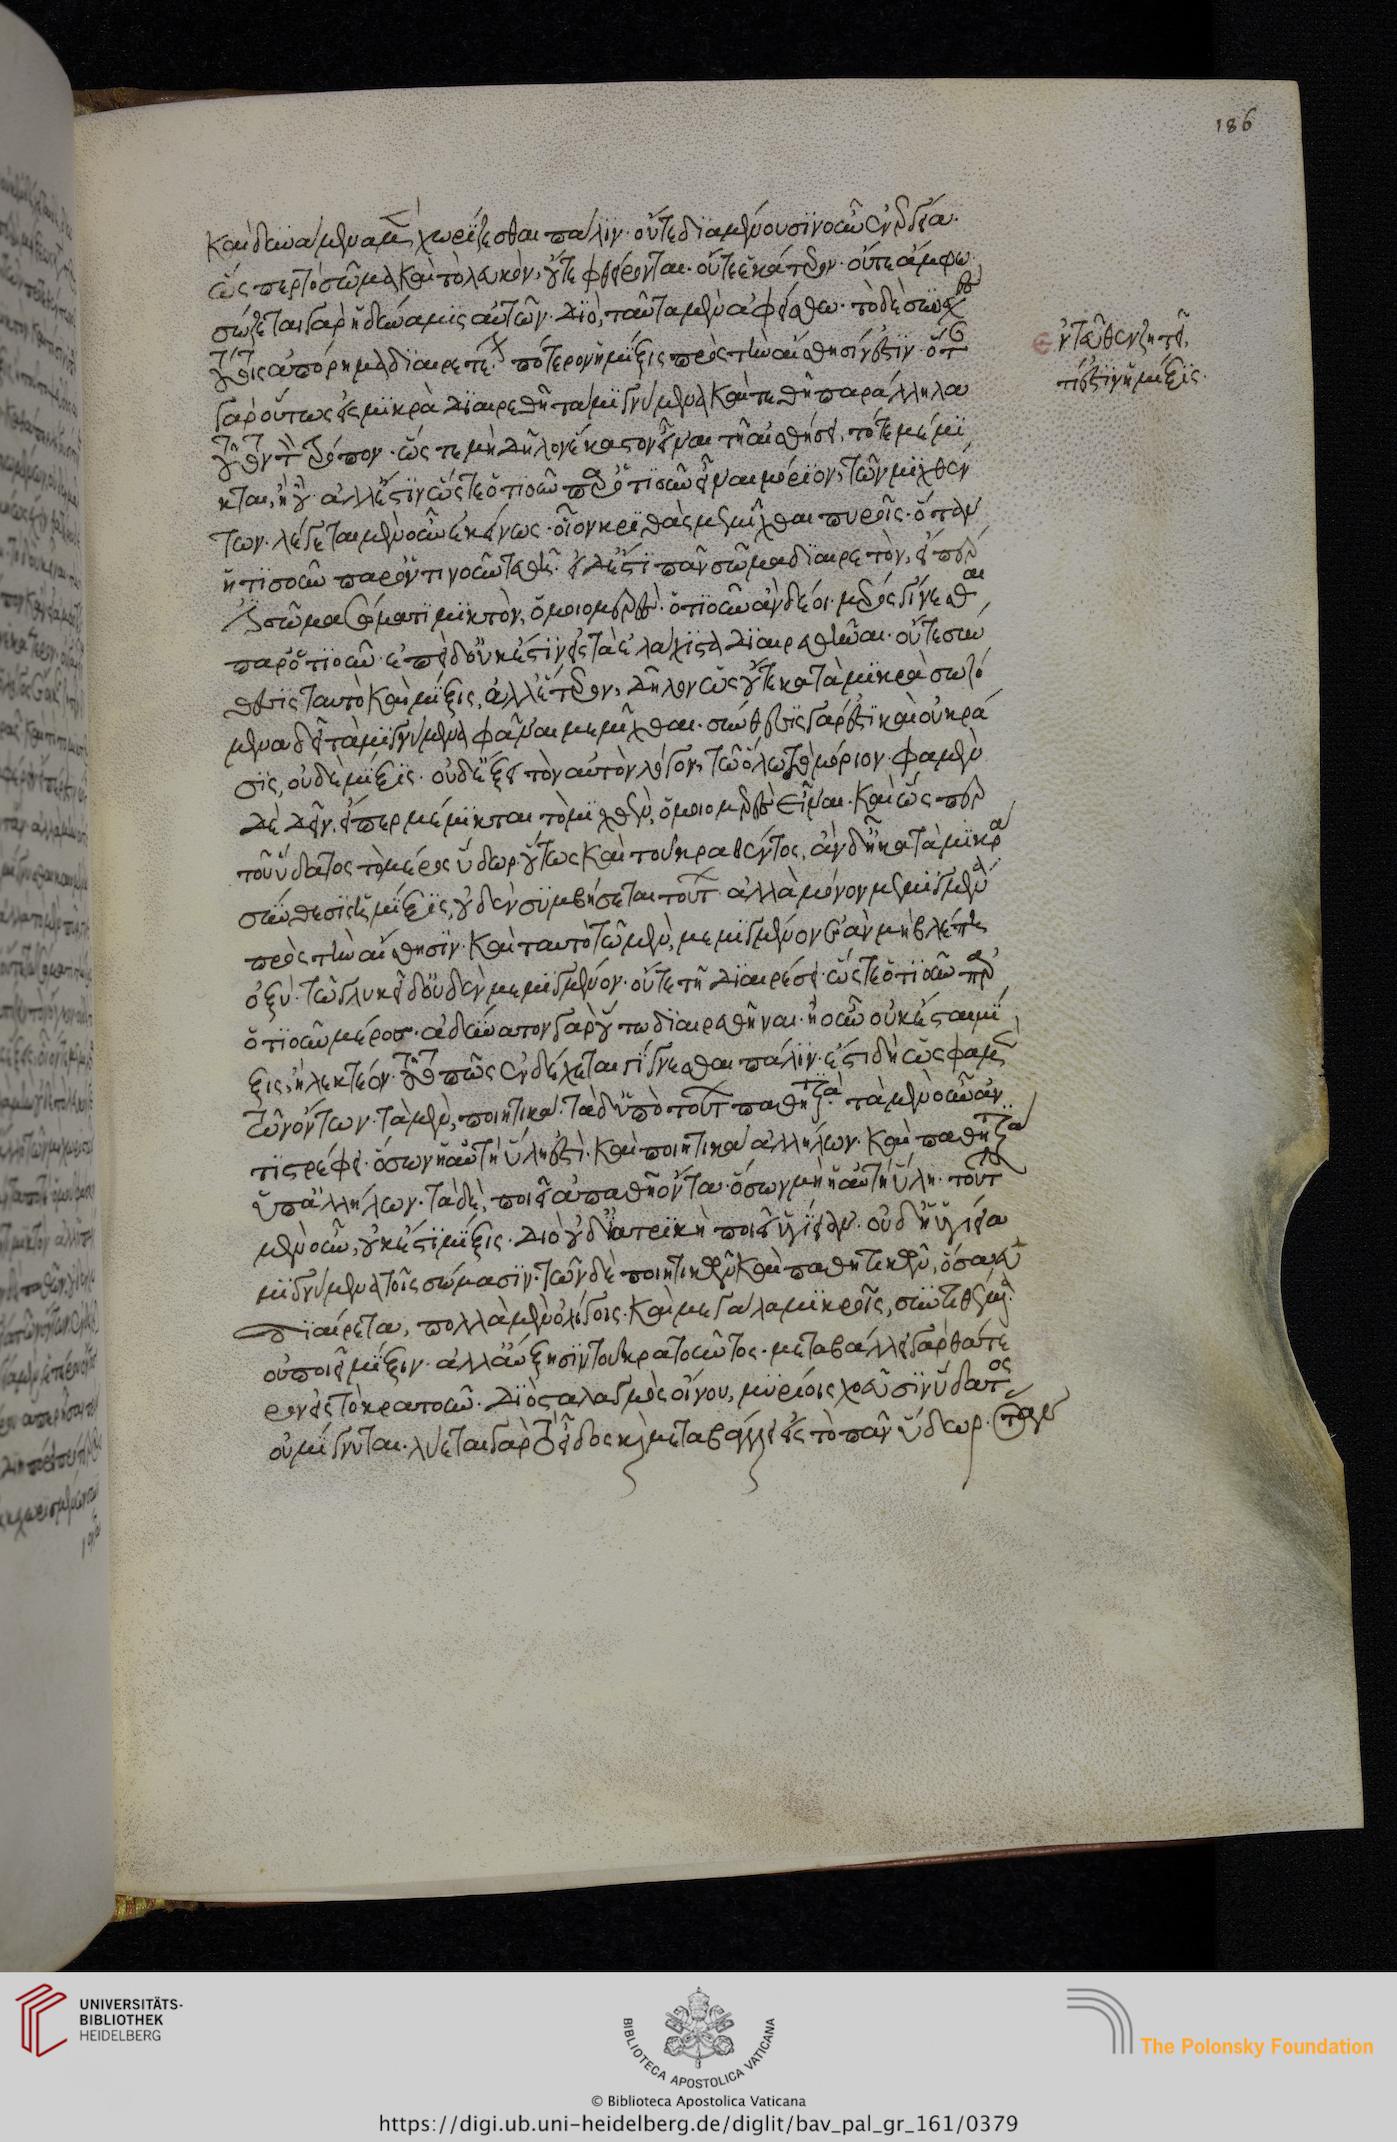 καὶ δυνάμενα μὲν χωρίζεσθαι πάλιν· οὔτε διαμένουσιν οὖν ἐνεργεία·
ὥσπερ τὸ σῶμα καὶ τὸ λευκόν, οὔτε φθείρονται· οὔτε ἑκάτερον· οὔτε ἄμφω·
σώζεται γὰρ ἡ δύναμις αὐτῶν· διὸ, ταῦτα μὲν ἀφείσθω· τὸ δὲ συνεχὲς
τούτοις ἀπόρημα διαιρετέον· πότερον ἡ μίξις πρὸς τὴν αἴσθησίν ἐστιν· ὅταν
γὰρ οὕτως εἰς μικρὰ διαιρεθῆ τὰ μιγνύμενα καὶ τεθῆ παράλληλα
τοῦτον τὸν τρόπον· ὥστε μὴ δῆλον ἕκαστον εἶναι τῆ αἰσθήσει, τότε μέμι
κται, ἢ οὔ· ἀλλ' ἔστιν ὥστε ὁτιοῦν παρ' ὁτιοῦν εἶναι μόριον, τῶν μιχθέν
των· λέγεται μὲν οὖν ἐκείνως· οἷον κριθὰς μεμῖχθαι πυροῖς· ὅταν
ἡτισοῦν παρ' ὁντινοῦν τεθῆ· εἰ δ' ἐστὶ πᾶν σῶμα διαιρετὸν, εἴπερ
καὶ σῶμα σώματι μικτὸν, ὁμοιομερὲς· ὁτιοῦν ἂν δέοι· μέρος γίνεσθαι
παρ' ὁτιοῦν· ἐπεὶ δ' οὐκ ἔστιν εἰς τὰ ἐλάχιστα διαιρεθῆναι· οὔτε σύν
θεσις ταὐτὸ καὶ μίξις, ἀλλ' ἕτερον, δῆλον ὡς οὔτε κατὰ μικρὰ σωζό
μενα δεῖ τὰ μιγνύμενα φάναι μεμῖχθαι· σύνθεσις γάρ ἐστι καὶ οὐ κρᾶ
σις, οὐδὲ μίξις· οὐδ' ἕξει τὸν αὐτὸν λόγον, τῶ ὅλω τὸ μόριον· φαμὲν
δὲ δεῖν, εἴπερ μέμικται τὸ μιχθὲν, ὁμοιομερὲς εἶναι· καὶ ὥσπερ
τοῦ ὕδατος τὸ μέρος ὕδωρ οὕτως καὶ τοῦ κραθέντος, ἂν δ' ἦ κατὰ μικρὰ
σύνθεσις ἡ μίξις, οὐδὲν συμβήσεται τούτων· ἀλλὰ μόνον μεμιγμένα
πρὸς τὴν αἴσθησιν· καὶ ταυτὸ τῶ μὲν, μεμιγμένον ἐὰν μὴ βλέπη
ὀξύ· τῶ γλυκεῖ δ' οὐδὲν μεμιγμένον· οὔτε τῆ διαιρέσει· ὥστε ὁτιοῦν παρ'
ὁτιοῦν μέρος· ἀδύνατον γὰρ οὕτω διαιρεθῆναι· ἢ οὖν οὐκ ἔσται μί
ξις, ἢ λεκτέον· τοῦτο πῶς ἐνδέχεται γίγνεσθαι πάλιν· ἔστι δὴ ὡς φαμὲν
τῶν ὄντων· τὰ μὲν, ποιητικά· τὰ δ' ὑπὸ τούτων παθητικά· τὰ μὲν οὖν ἀν
τιστρέφει· ὅσων ἡ αὐτὴ ὕλη ἐστὶ· καὶ ποιητικὰ ἀλλήλων· καὶ παθητικὰ
ὑπ' ἀλλήλων· τὰ δὲ, ποιεῖ ἀπαθῆ ὄντα· ὅσων μὴ ἡ αὐτὴ ὕλη· τούτων
μὲν οὖν, οὐκ ἔστι μίξις· διὸ οὐδ' ἡ ἰατρικὴ ποιεῖ ὑγίειαν· οὐδ' ἡ ὑγίεια
μιγνύμενα τοῖς σώμασιν· τῶν δὲ ποιητικῶν καὶ παθητικῶν, ὅσα εὐ
διαίρετα, πολλὰ μὲν ὀλίγοις· καὶ μεγάλα μικροῖς, συντεθέμενα
οὐ ποιεῖ μίξιν· ἀλλ' αὔξησιν τοῦ κρατοῦντος· μεταβάλλει γὰρ θάτε
ρον εἰς τὸ κρατοῦν· διὸ σταλαγμὸς οἴνου, μυρίοις χοεῦσιν ὕδατος
οὐ μίγνυται· λύεται γὰρ τὸ εἶδος καὶ μεταβάλλει εἰς τὸ πᾶν ὕδωρ·
ἐνταῦθεν ζητεῖ,
τί ἐστιν ἡ μίξις·
186
UNIVERSITÄTS-
BIBLIOTHEK
HEIDELBERG
BIBLIOTECA APOSTOLICA VATICANA
The Polonsky Foundation
© Biblioteca Apostolica Vaticana
https://digi.ub.uni-heidelberg.de/diglit/bav_pal_gr_161/0379